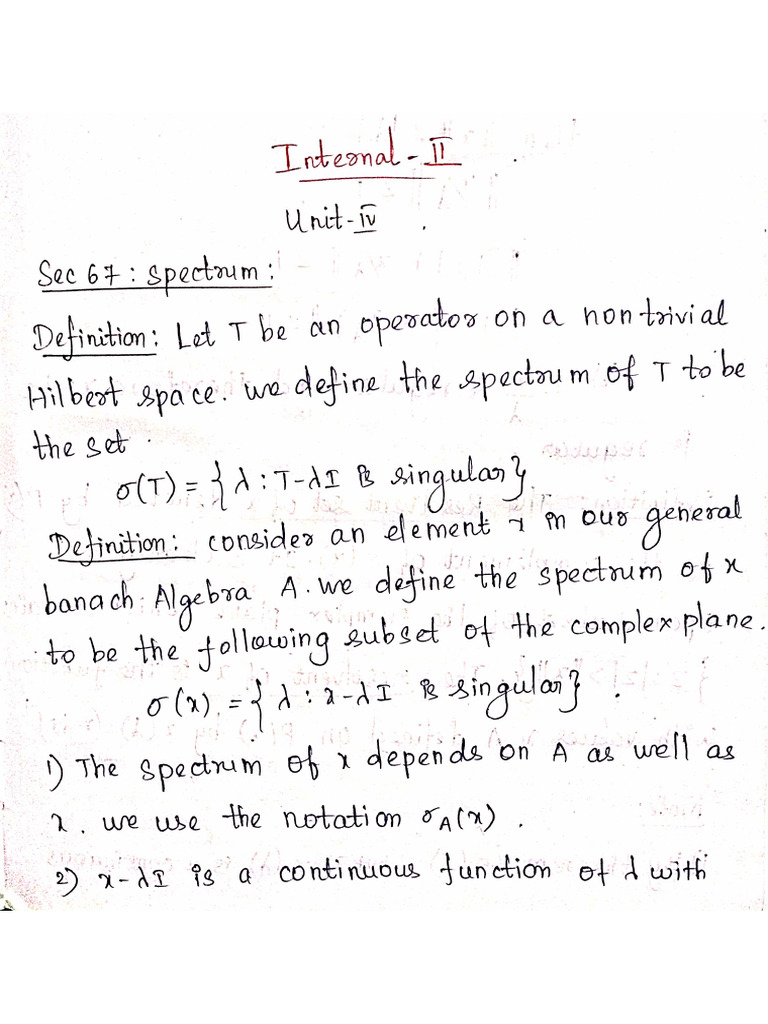 Internal - II
Unit - iv
Sec 67 : Spectrum :
Definition : Let T be an operator on a non trivial
Hilbert space. we define the spectrum of T to be
the set.
σ(T) = { λ : T-λI is singular}
Definition : consider an element x in our general
banach Algebra A. we define the spectrum of x
to be the following subset of the complex plane.
σ(x) = { λ : x-λI is singular} .
1) The spectrum of x depends on A as well as
x. we use the notation σA(x) .
2) x-λI is a continuous function of λ with